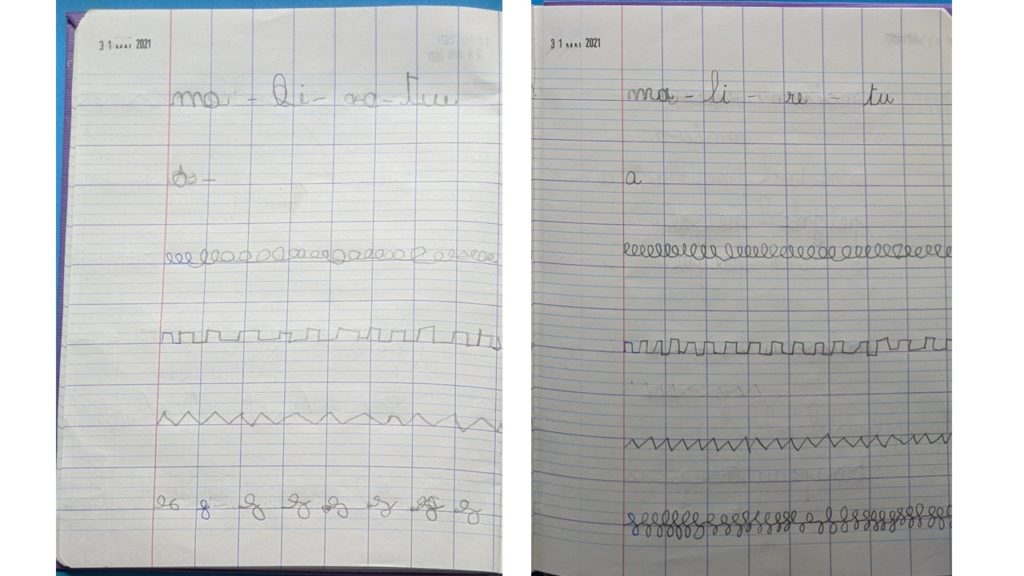 31 MAI 2021
ma - li - - tu
31 MAI 2021
ma - li - re - tu
a